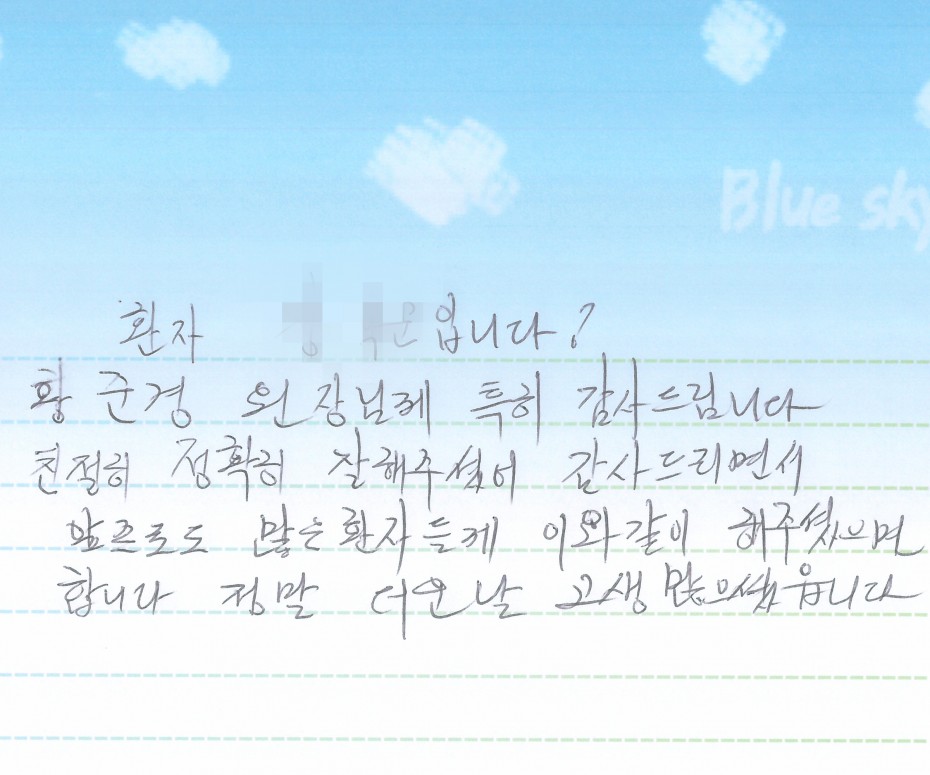 Blue sky
환자 입니다?
황준경 원장님께 특히 감사드립니다
친절히 정확히 잘해주셨어 감사드리면서
앞으로도 많는환자들게 이와같이 해주셨으면
합니다 정말 더운날 고생많으셨읍니다